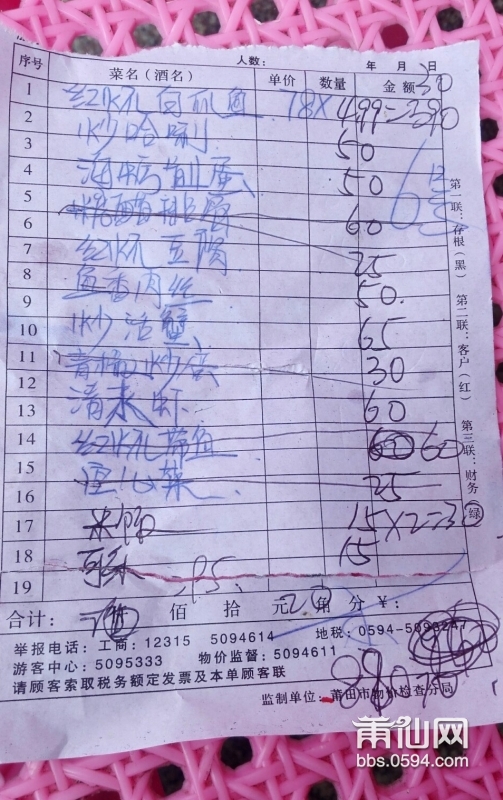 人数： 年 月 日
序号 菜名（酒名） 单价 数量 金额
1 红烧白瓜鱼 78X4.99=390
2 炒哈喇 50
3
4 海蛎煎蛋 50
5
6 60
7 红烧豆腐 25
8 鱼香肉丝 50.
9
10 炒活蟹 65
11 30
12
13 清水虾 60
14 红烧带鱼 60 60
15 空心菜 25
16
17 米饭 15X2=30
18 15
19
合计： 佰 拾 元 角 分 ￥：
举报电话：工商：12315 5094614 地税：0594-5093247
游客中心：5095333 物价监督：5094611
请顾客索取税务额定发票及本单顾客联
监制单位：莆田市物价检查分局
880
第一联：存根（黑） 第二联：客户（红） 第三联：财务（绿）
莆仙网
bbs.0594.com